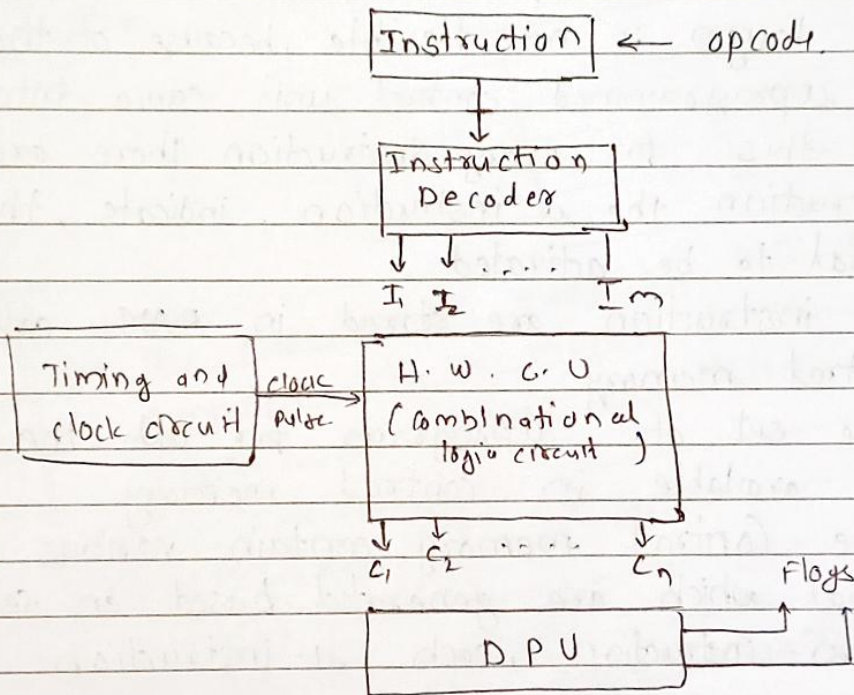 Instruction ← opcode.
Instruction
Decoder
I1 I2 . . . . Im
Timing and
clock circuit
clock
pulse
H. W. C. U
(Combinational
logic circuit)
C1 C2 . . . . Cn
Flags
D P U